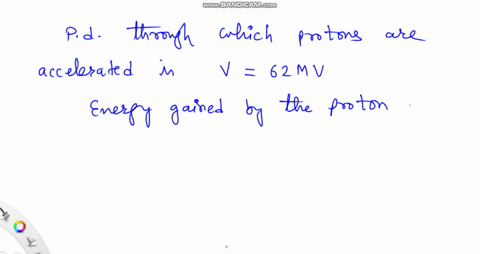 WWW.BANDICAM.COM
P.d. through which protons are
accelerated in V = 62 MV
Energy gained by the proton